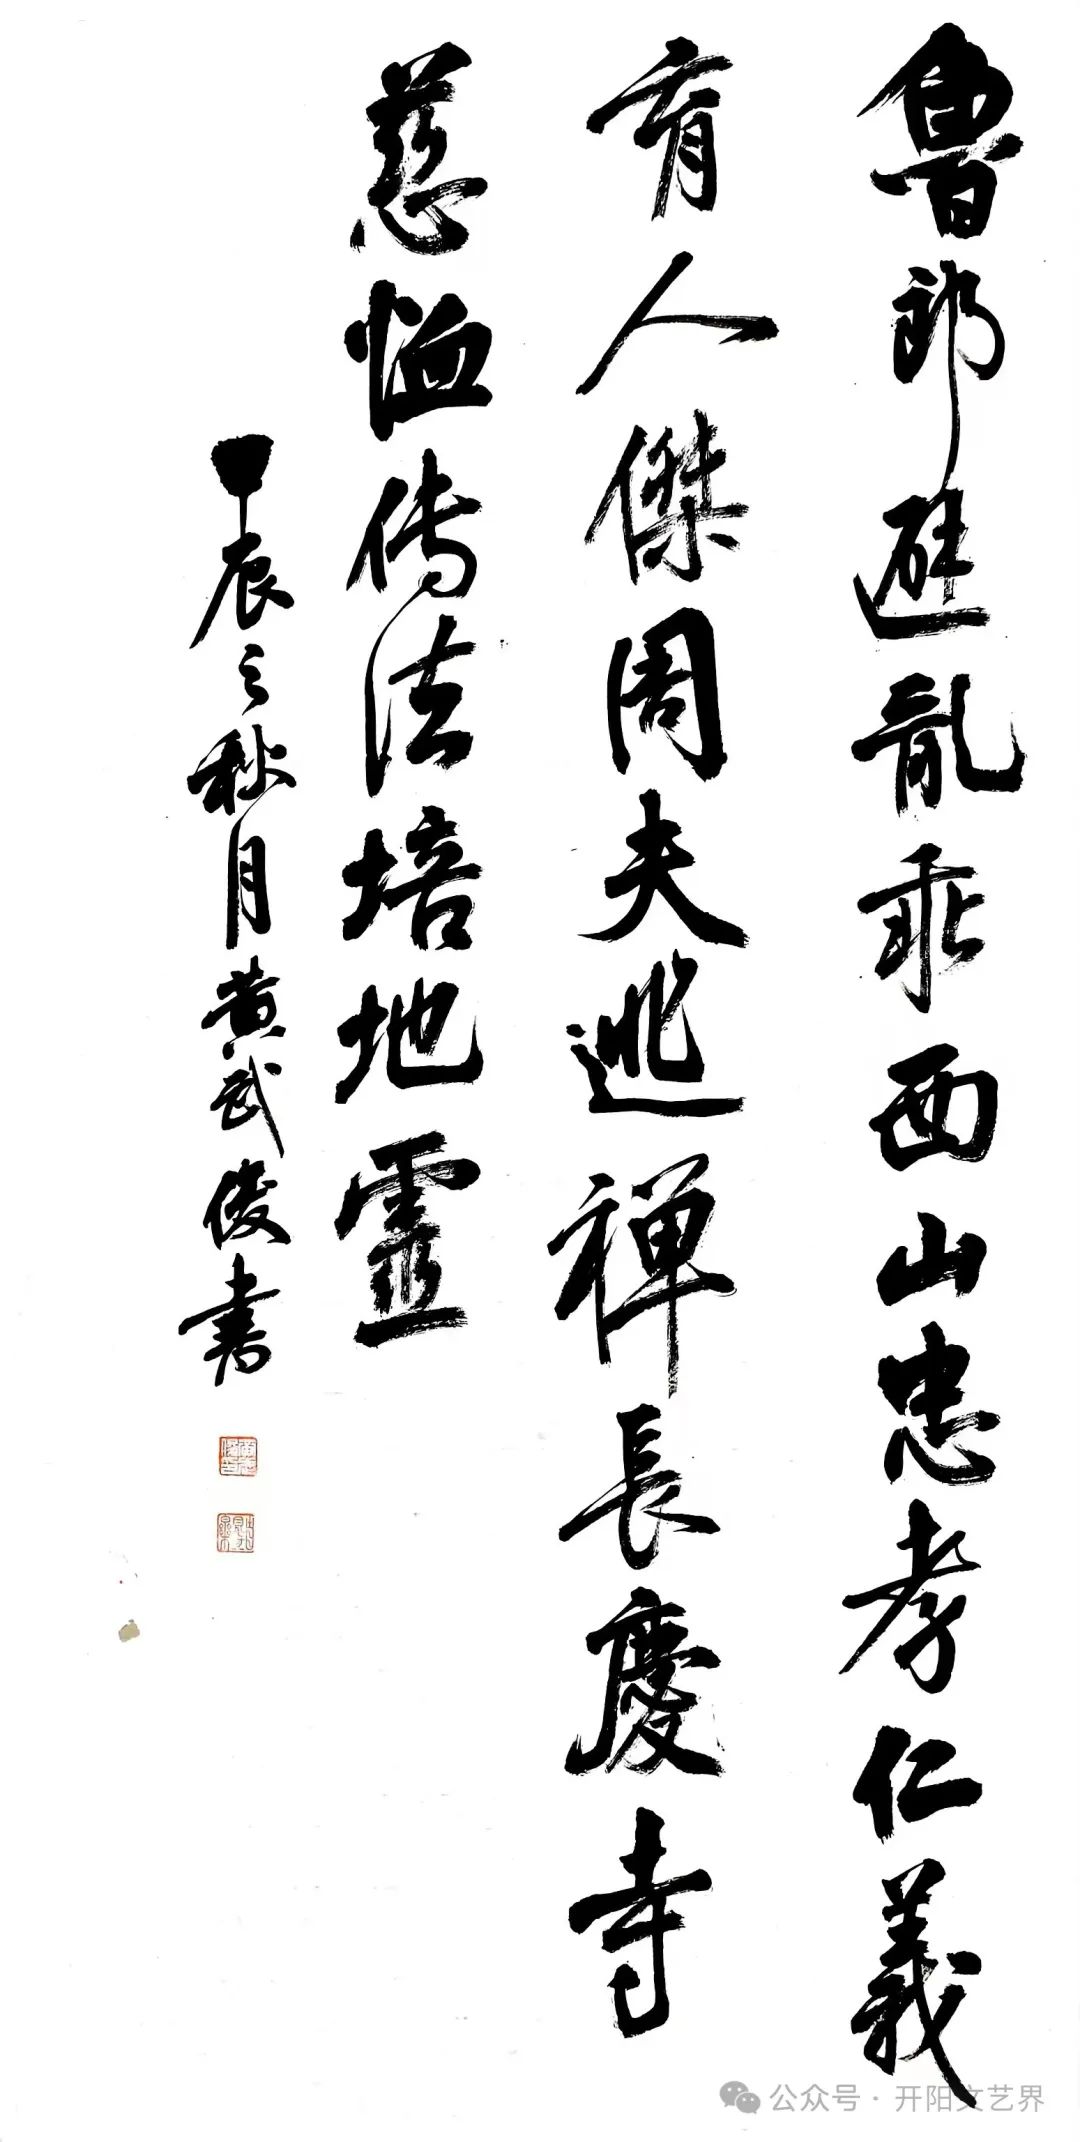 魯郎避亂乖西山忠孝仁義
育人傑周夫逃禅長慶寺
慈恤传法培地靈
甲辰之秋月黄武俊書
公众号 · 开阳文艺界